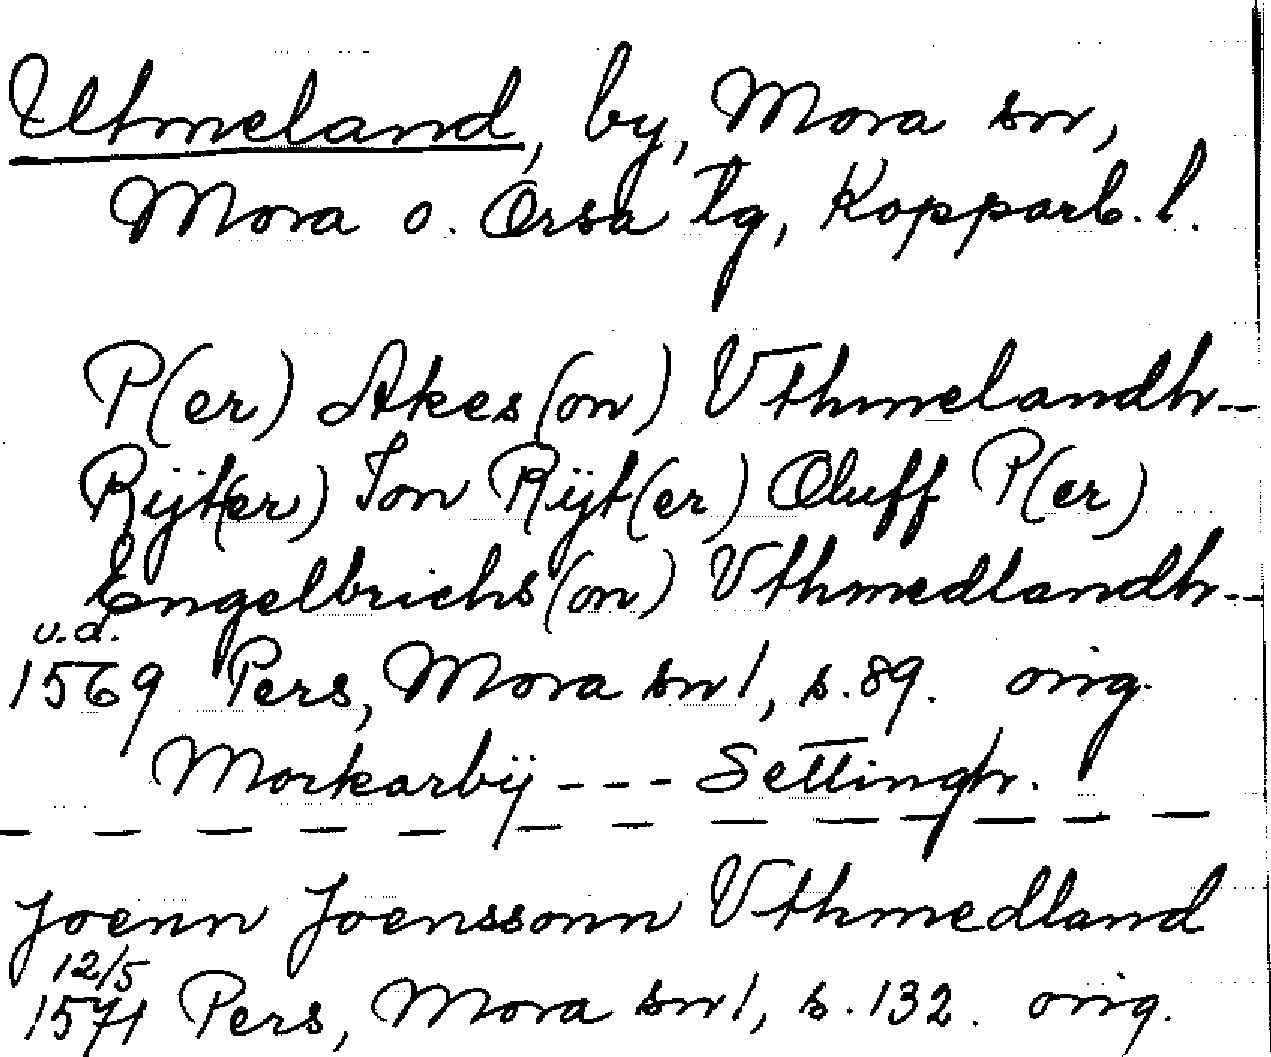 Utmeland, by, Mora sn,
Mora o. Orsa tg, Kopparb. l.
P(er) Akes(on) Vthmelandh--
Rÿt(er) Jon Rÿt(er) Oluff P(er)
Engelbrichs(on) Vthmedlandh--
u.d.
1569 Pers, Mora sn 1, s. 89. orig.
Morkarbÿ --- Settingh.
Joenn Joenssonn Vthmedland
12/5
1571 Pers, Mora sn 1, s. 132. orig.